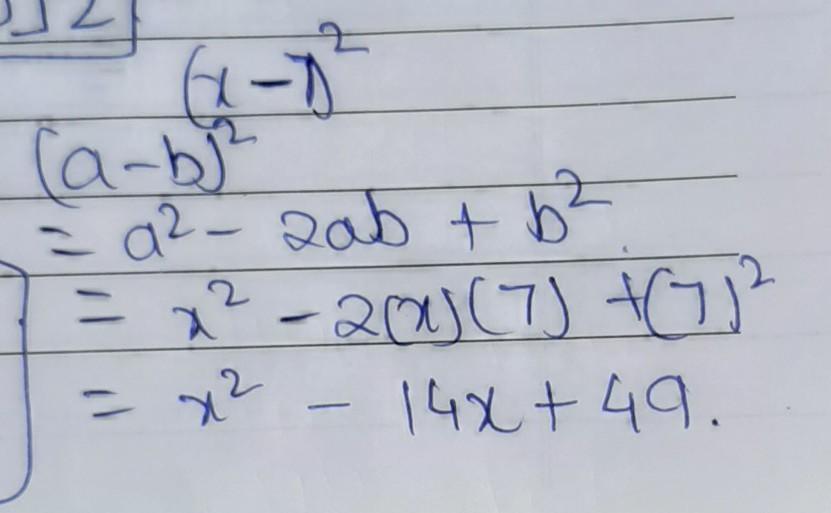 (x-7)²
(a-b)²
= a² - 2ab + b²
= x² - 2(x)(7) + (7)²
= x² - 14x + 49.